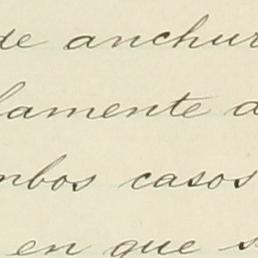 de anchur
lamente a
mbos casos
en que s